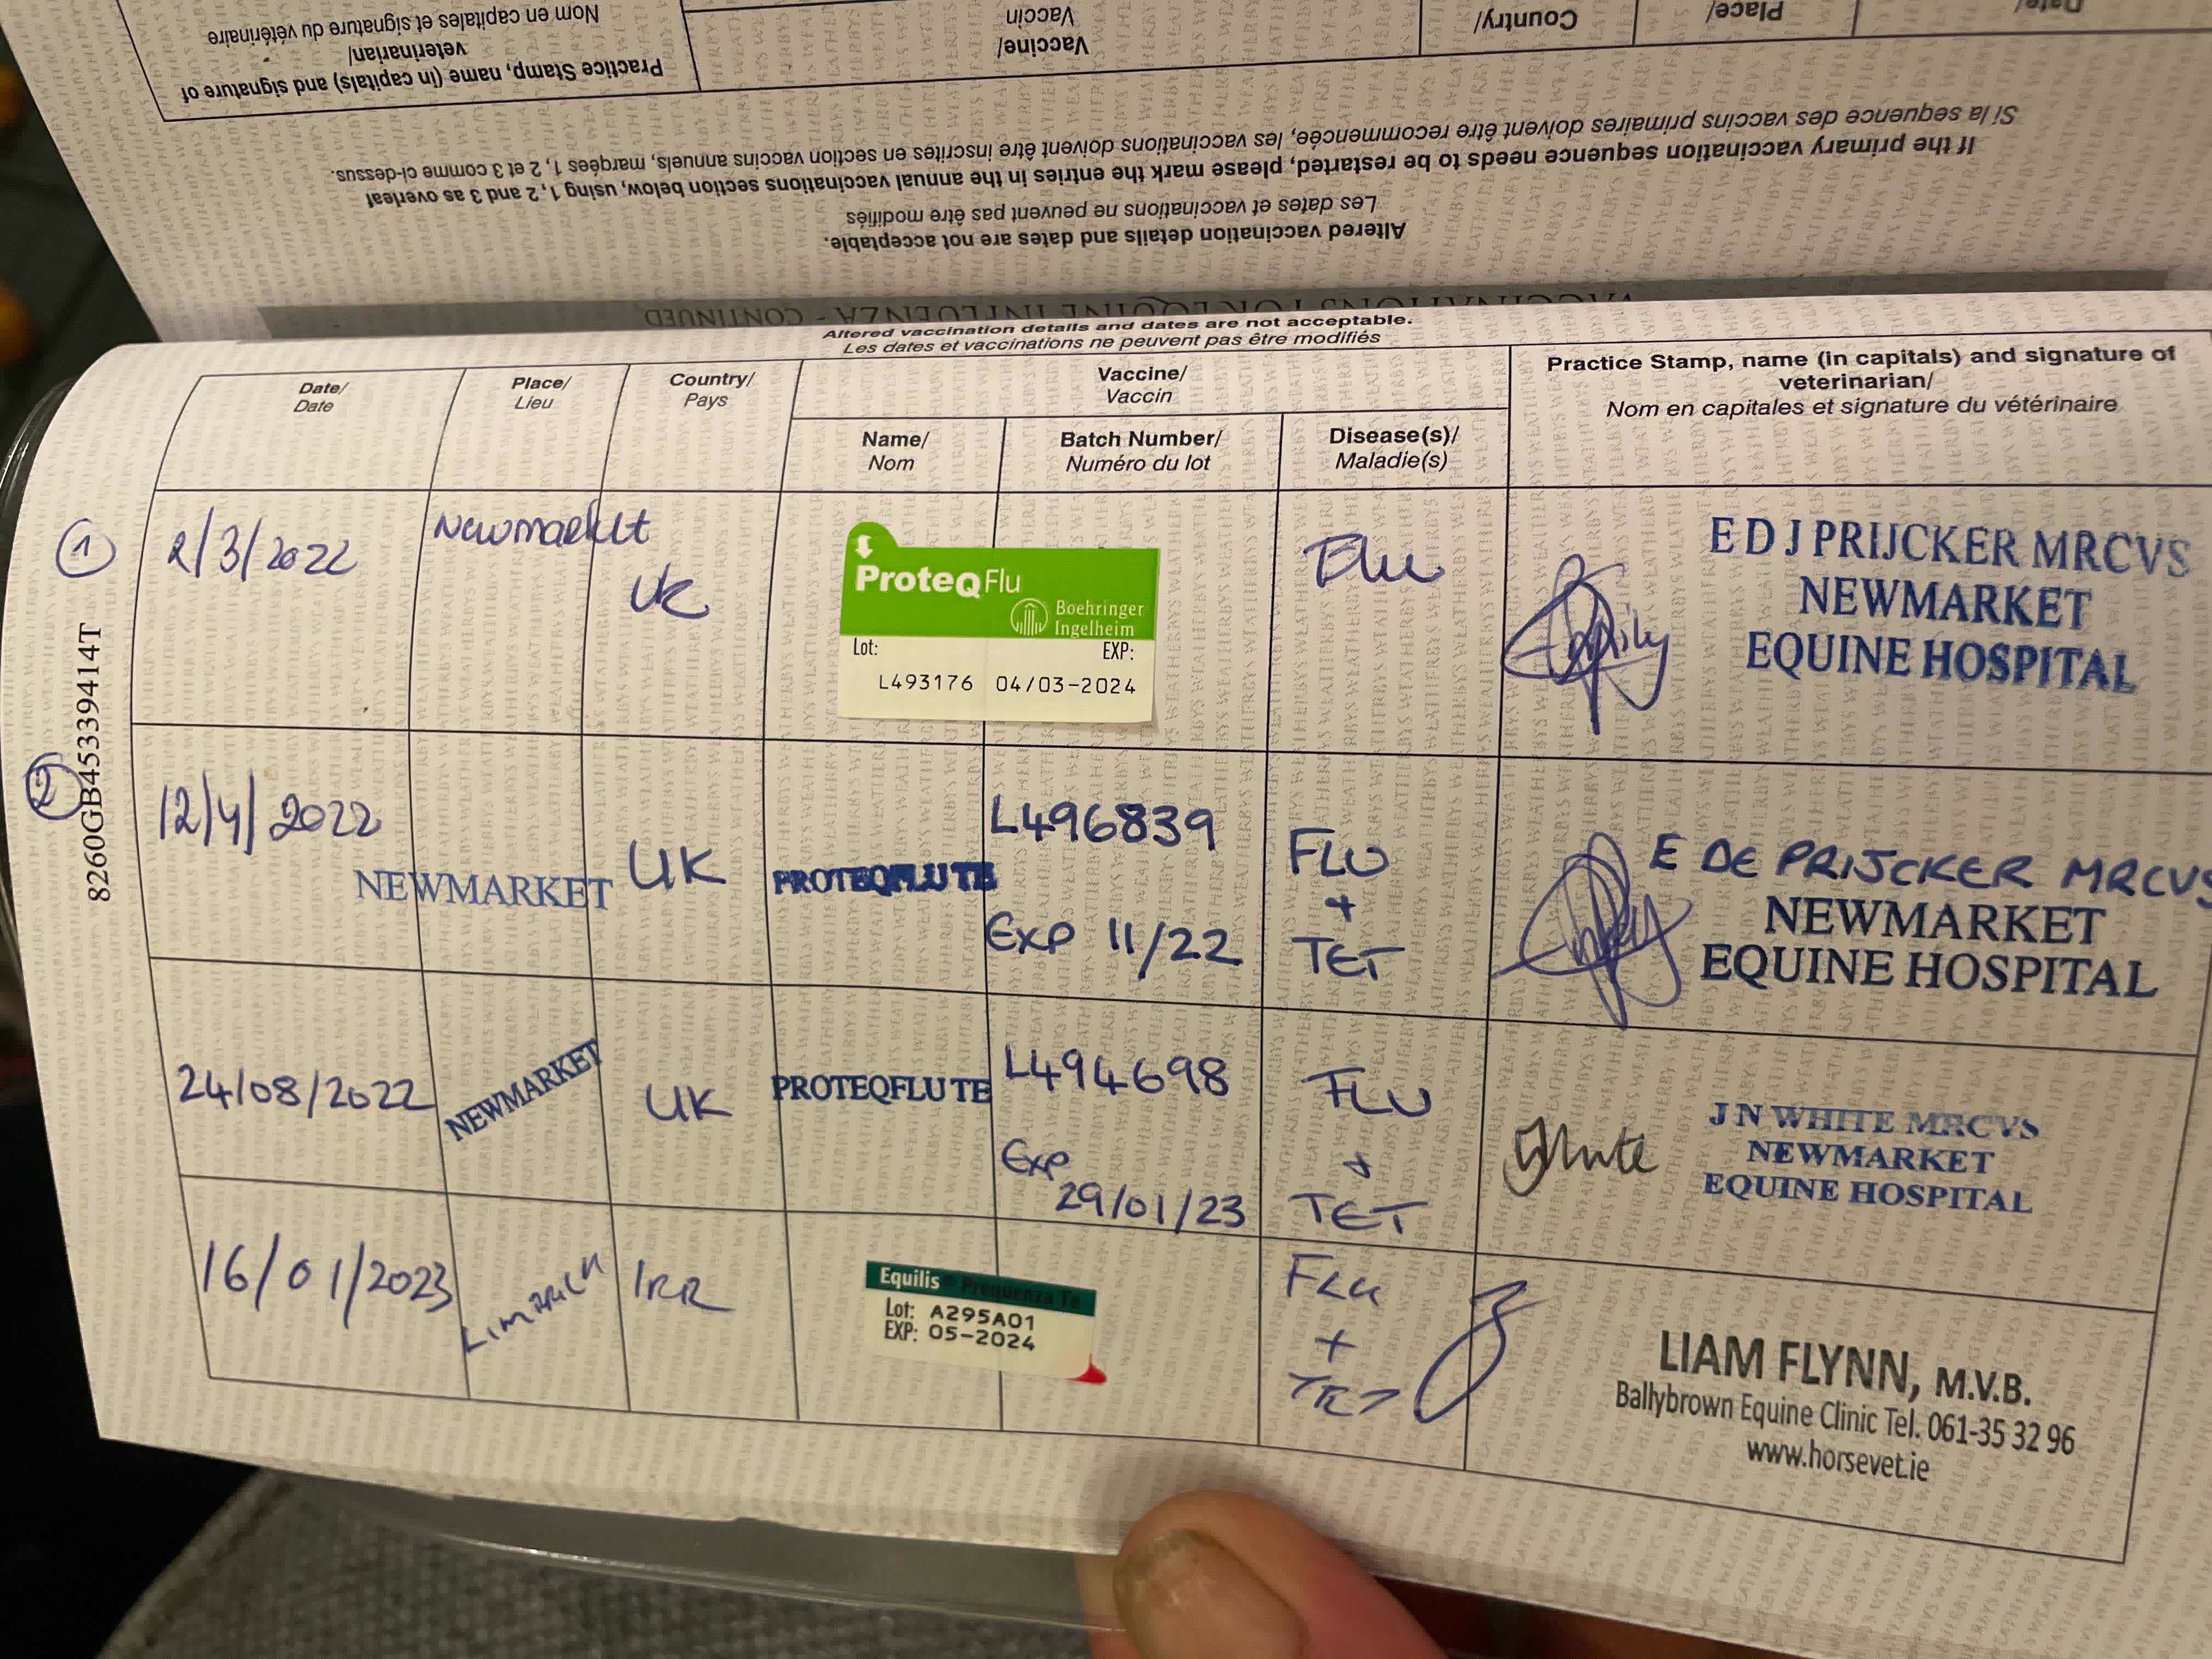 Date/ Place/ Country/ Vaccine/ Practice Stamp, name (in capitals) and signature of
Vaccin veterinarian/
Nom en capitales et signature du vétérinaire
If the primary vaccination sequence needs to be restarted, please mark the entries in the annual vaccinations section below, using 1, 2 and 3 as overleaf
Si la sequence des vaccins primaires doivent être recommencée, les vaccinations doivent être inscrites en section vaccins annuels, marqées 1, 2 et 3 comme ci-dessus.
Altered vaccination details and dates are not acceptable.
Les dates et vaccinations ne peuvent pas être modifiés
VACCINATIONS FOR EQUINE INFLUENZA - CONTINUED
Altered vaccination details and dates are not acceptable.
Les dates et vaccinations ne peuvent pas être modifiés
Date/
Date
Place/
Lieu
Country/
Pays
Vaccine/
Vaccin
Name/
Nom
Batch Number/
Numéro du lot
Disease(s)/
Maladie(s)
Practice Stamp, name (in capitals) and signature of
veterinarian/
Nom en capitales et signature du vétérinaire
8260GB45339414T
1
2/3/2022
Newmarket
UK
ProteqFlu
Boehringer
Ingelheim
Lot: EXP:
L493176 04/03-2024
Flu
E D J PRIJCKER MRCVS
NEWMARKET
EQUINE HOSPITAL
2
12/4/2022
NEWMARKET
UK
PROTEQFLU TE
L496839
Exp 11/22
FLU
+
TET
E DE PRIJCKER MRCVS
NEWMARKET
EQUINE HOSPITAL
24/08/2022
NEWMARKET
UK
PROTEQFLU TE
L494698
Exp
29/01/23
FLU
+
TET
J N WHITE MRCVS
NEWMARKET
EQUINE HOSPITAL
16/01/2023
Limerick
IRE
Equilis® Prequenza Te
Lot: A295A01
EXP: 05-2024
Flu
+
TET
LIAM FLYNN, M.V.B.
Ballybrown Equine Clinic Tel. 061-35 32 96
www.horsevet.ie